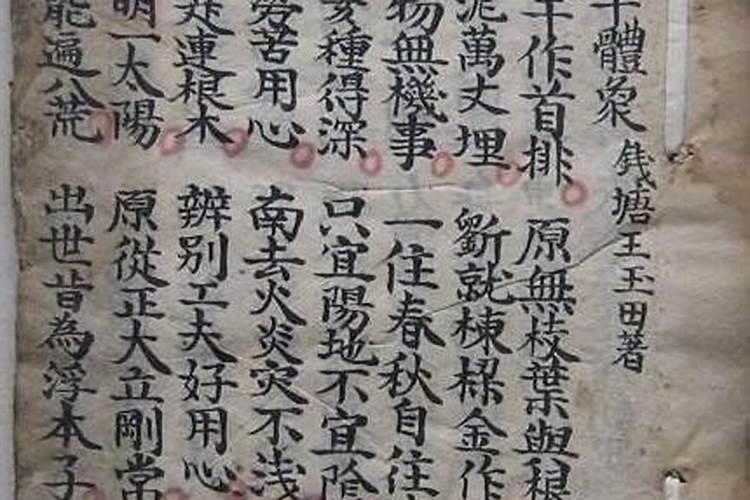 干體象 錢塘王玉田著
干作首排 原無枝葉與根
泥萬丈埋 斵就棟樑金作
物無機事 一住春秋自住
亥種得深 只宜陽地不宜陰
旁苦用心 南去火炎灾不浅
莚連根木 辨别工夫好用心
明一太陽 原從正大立剛常
能遍八荒 出世皆為浮本子